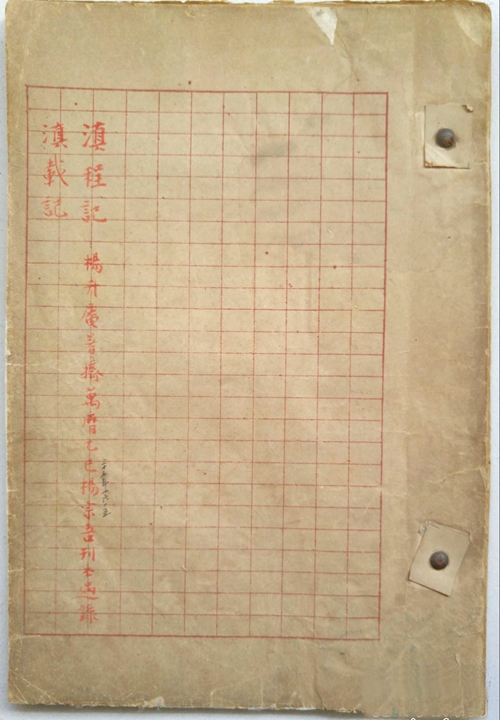 滇程記 楊升庵著 據萬曆乙巳楊宗吾刊本過錄
滇載記